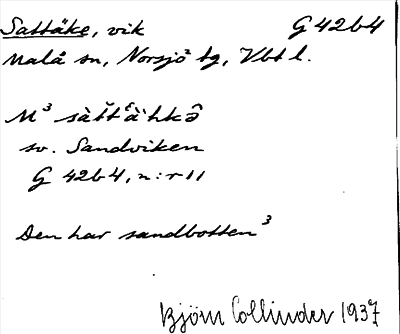 Sattåke, vik G 42b4
Malå sn, Norsjö tg, Vbt l.
M³
sv. Sandviken
G 42b4, n:r 11
Den har sandbotten³
Björn Collinder 1937